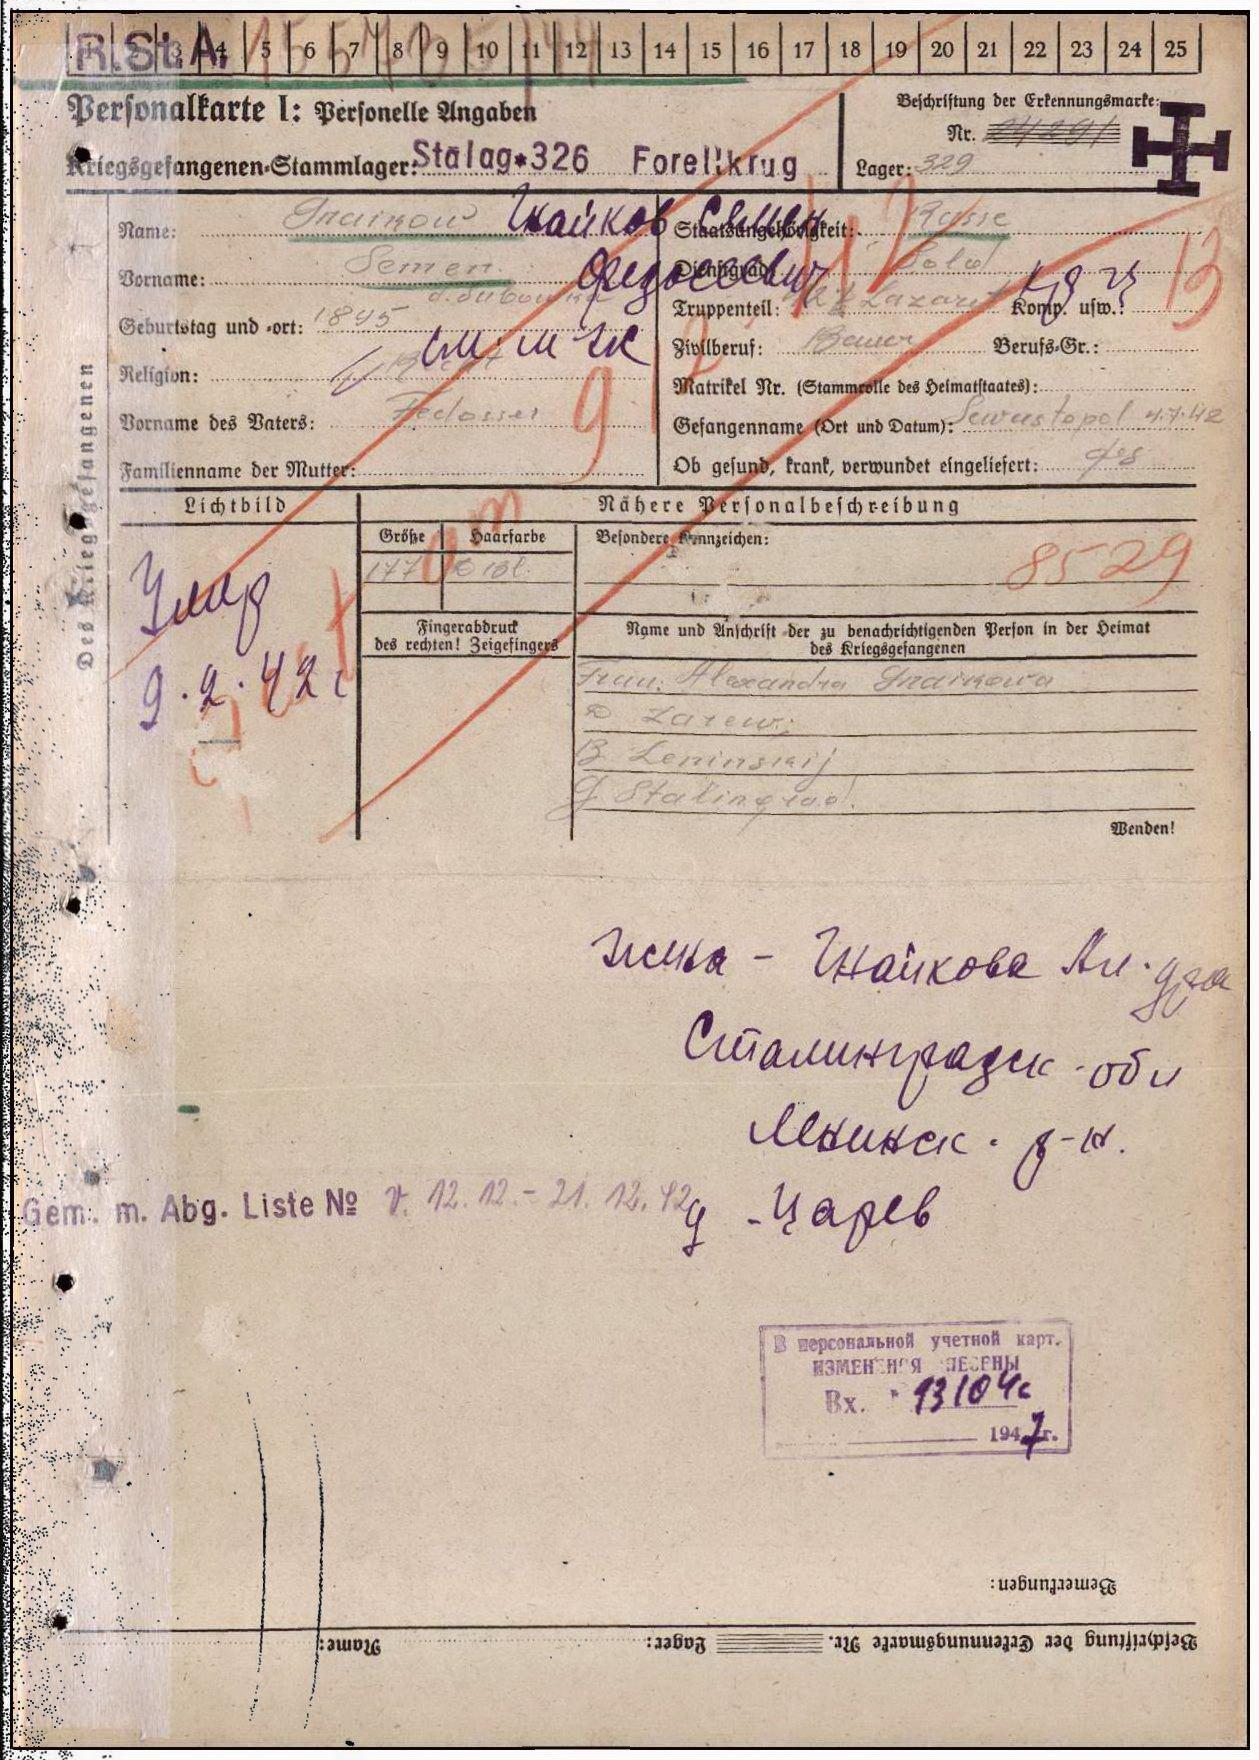 R.St.A.
1 2 3 4 5 6 7 8 9 10 11 12 13 14 15 16 17 18 19 20 21 22 23 24 25
Personalkarte I: Personelle Angaben
Beschriftung der Erkennungsmarke:
Nr.
Kriegsgefangenen-Stammlager: Stalag 326 Forellkrug
Lager: 329
Des Kriegsgefangenen
Name:
Staatsangehörigkeit: Russe
Vorname: Semen
Dienstgrad: Sold
Федосеевич
Truppenteil: Lazarett Komp. usw.:
Geburtstag und -ort: 1895 d. Dubowka
Zivilberuf: Bauer Berufs-Gr.:
Religion:
Matrikel Nr. (Stammrolle des Heimatstaates):
Vorname des Vaters: Fedosser
Gefangenname (Ort und Datum): Sewastopol 4.7.42
Familienname der Mutter:
Ob gesund, krank, verwundet eingeliefert:
13
9
Lichtbild
Nähere Personalbeschreibung
Größe Haarfarbe
Besondere Kennzeichen:
177
8529
Умер
9.2.42 г
Fingerabdruck
des rechten! Zeigefingers
Name und Anschrift der zu benachrichtigenden Person in der Heimat
des Kriegsgefangenen
Frau: Alexandra
D Zarew;
R Leninskij
G Stalingrad.
Wenden!
жена -
Сталинградск - обл
Ленинск. р-н.
д - Царев
Gem. m. Abg. Liste № v. 12.12.-21.12.42
В персональной учетной карт.
ИЗМЕНЕНИЯ ВНЕСЕНЫ
Вх. 13104с
1947г.
Bemerkungen:
Beschriftung der Erkennungsmarke Nr. Lager: Name: